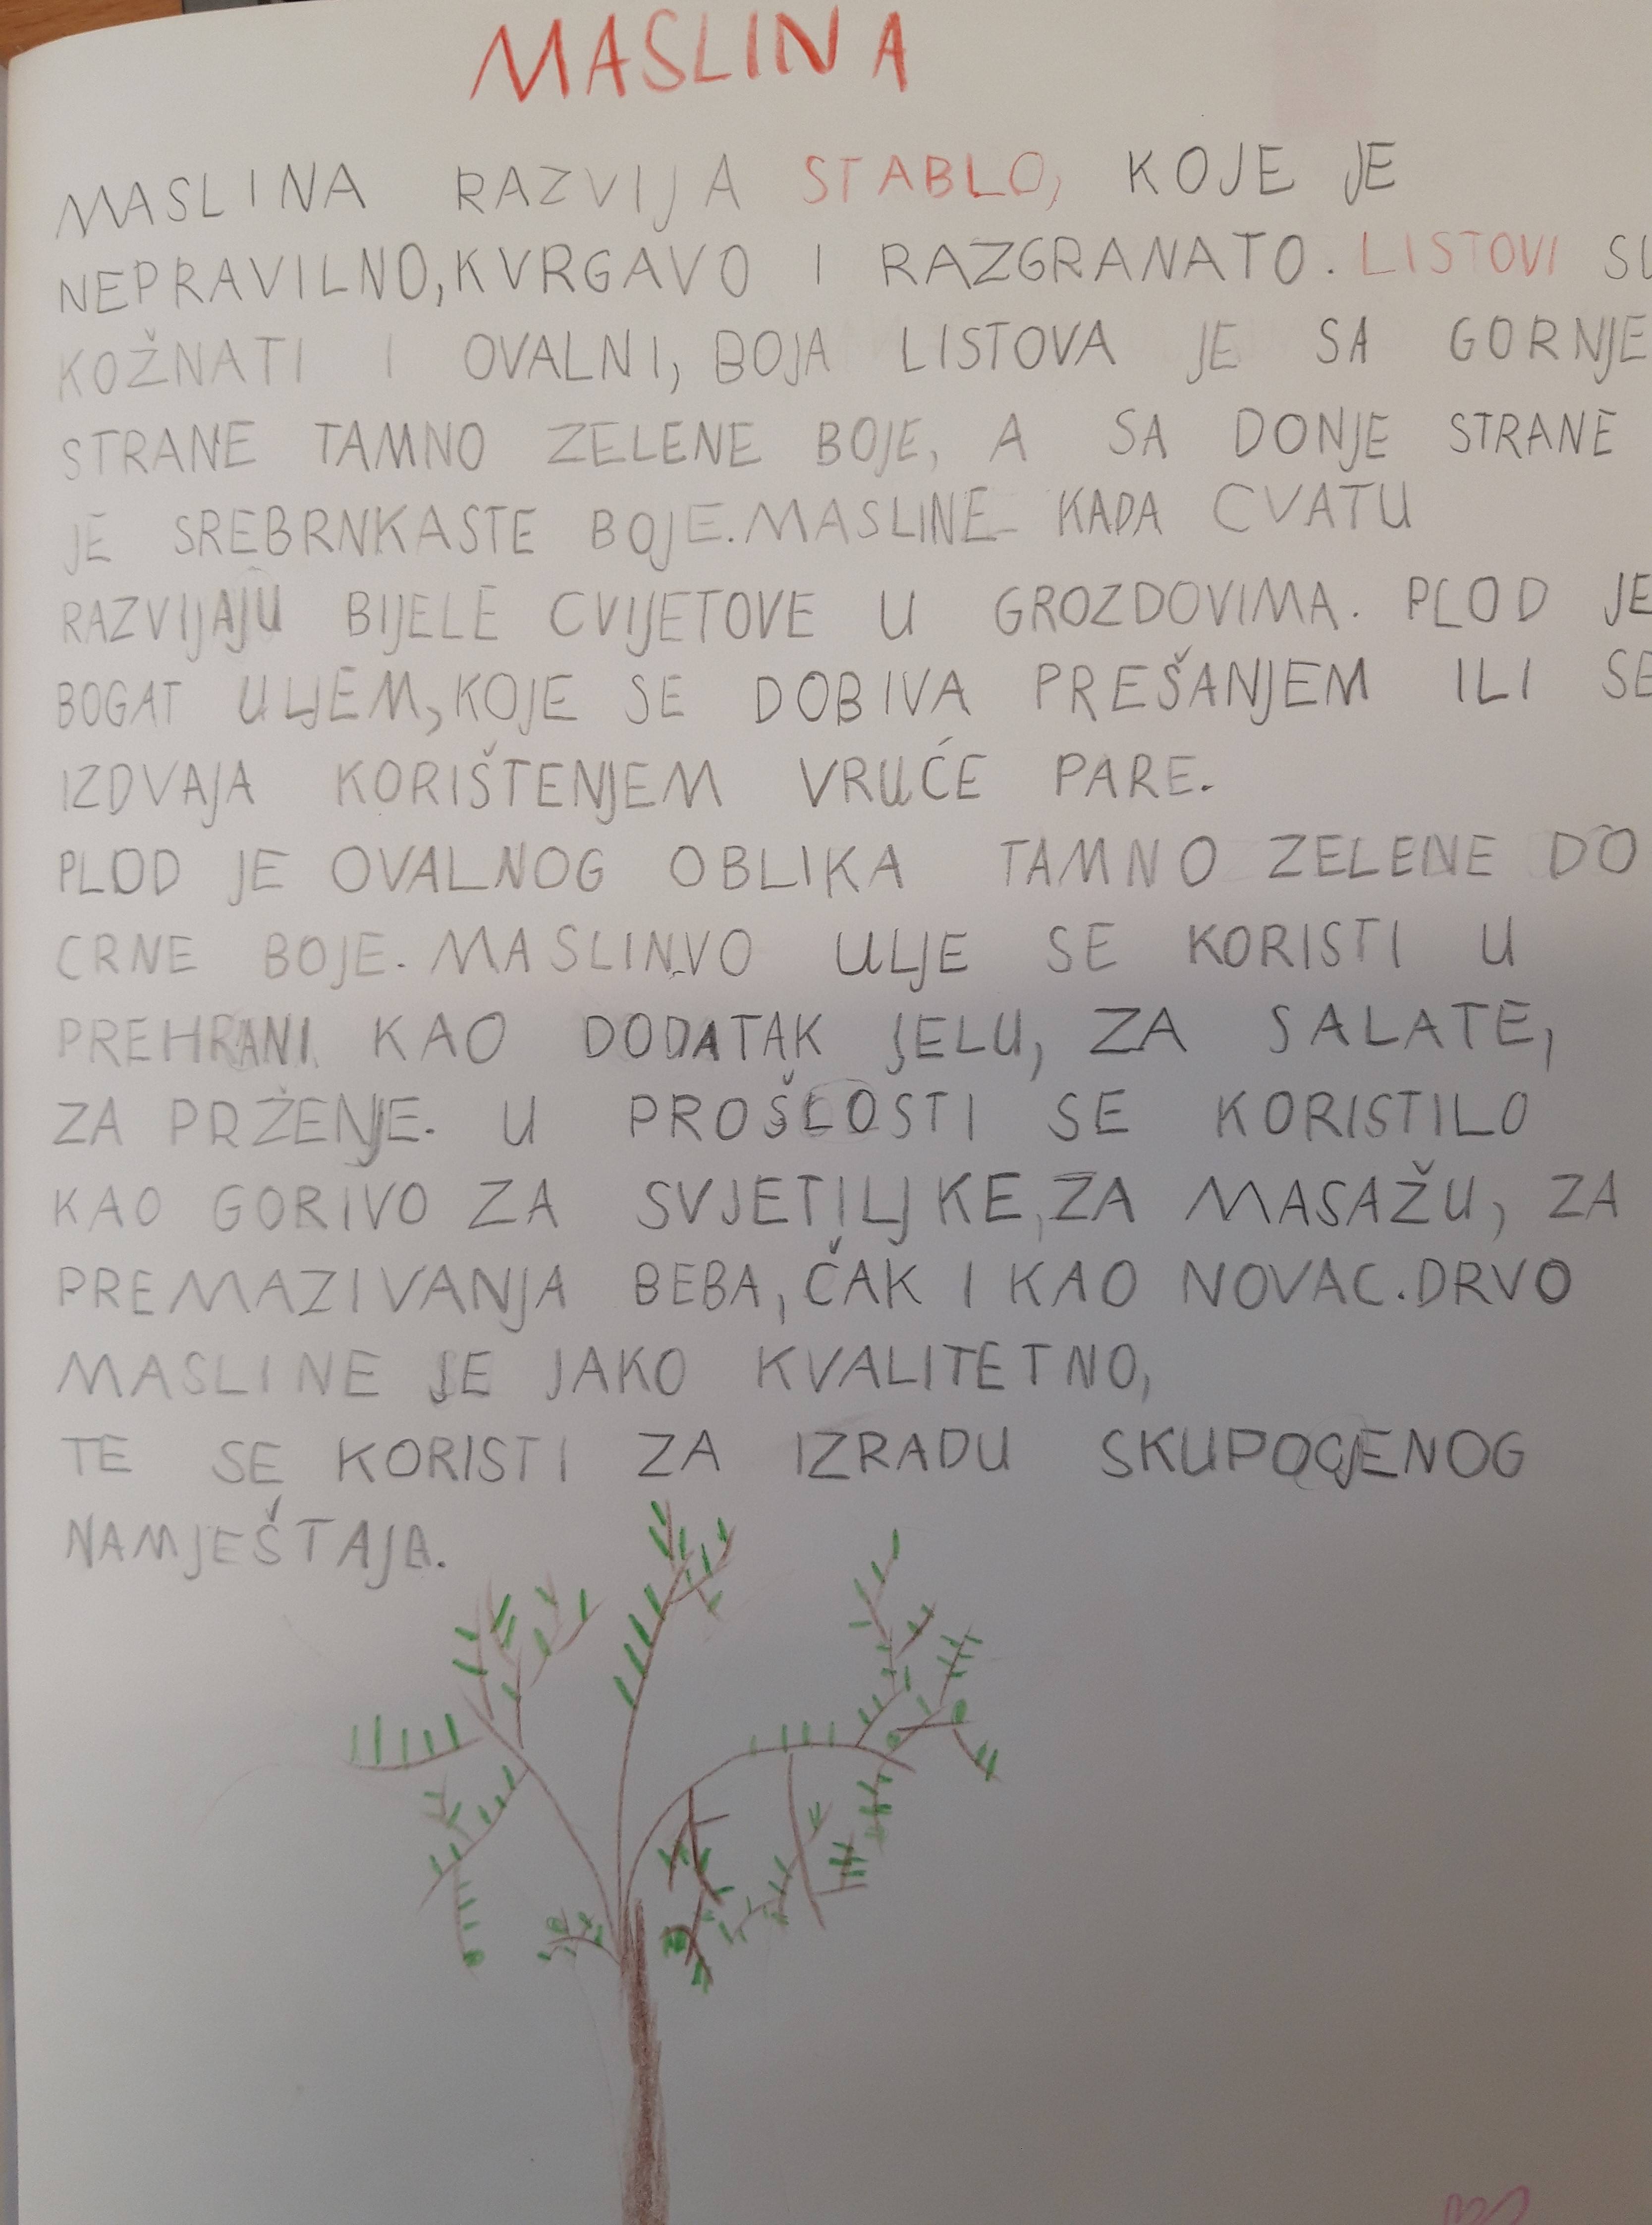 MASLINA
MASLINA RAZVIJA STABLO, KOJE JE
NEPRAVILNO, KVRGAVO I RAZGRANATO. LISTOVI SU
KOŽNATI I OVALNI, BOJA LISTOVA JE SA GORNJE
STRANE TAMNO ZELENE BOJE, A SA DONJE STRANE
JE SREBRNKASTE BOJE. MASLINE KADA CVATU
RAZVIJAJU BIJELE CVIJETOVE U GROZDOVIMA. PLOD JE
BOGAT ULJEM, KOJE SE DOBIVA PREŠANJEM ILI SE
IZDVAJA KORIŠTENJEM VRUĆE PARE.
PLOD JE OVALNOG OBLIKA TAMNO ZELENE DO
CRNE BOJE. MASLINVO ULJE SE KORISTI U
PREHRANI KAO DODATAK JELU, ZA SALATE,
ZA PRŽENJE. U PROŠLOSTI SE KORISTILO
KAO GORIVO ZA SVJETILJKE, ZA MASAŽU, ZA
PREMAZIVANJA BEBA, ČAK I KAO NOVAC. DRVO
MASLINE JE JAKO KVALITETNO,
TE SE KORISTI ZA IZRADU SKUPOCJENOG
NAMJEŠTAJA.